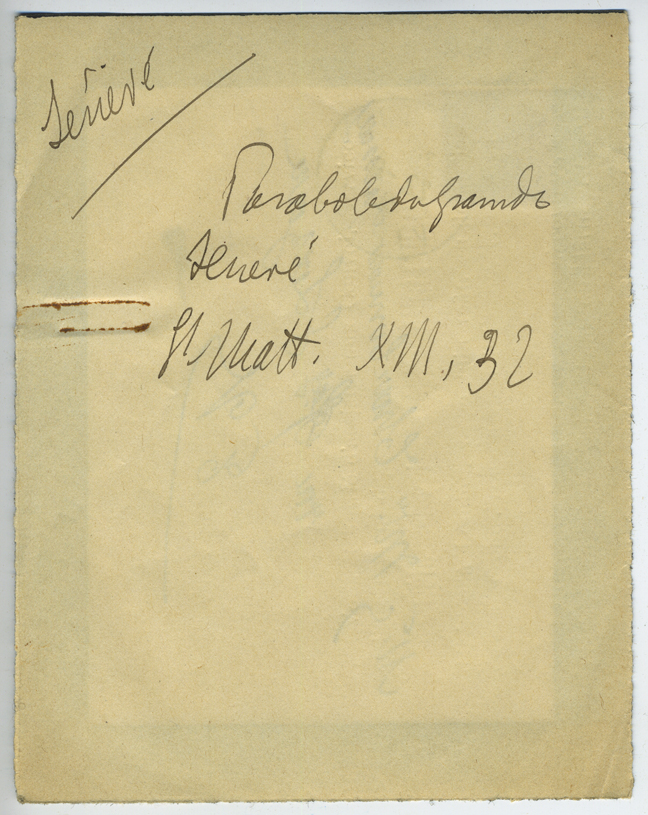 Senevé
Parabole du grain de
senevé
St Matt. XIII, 32